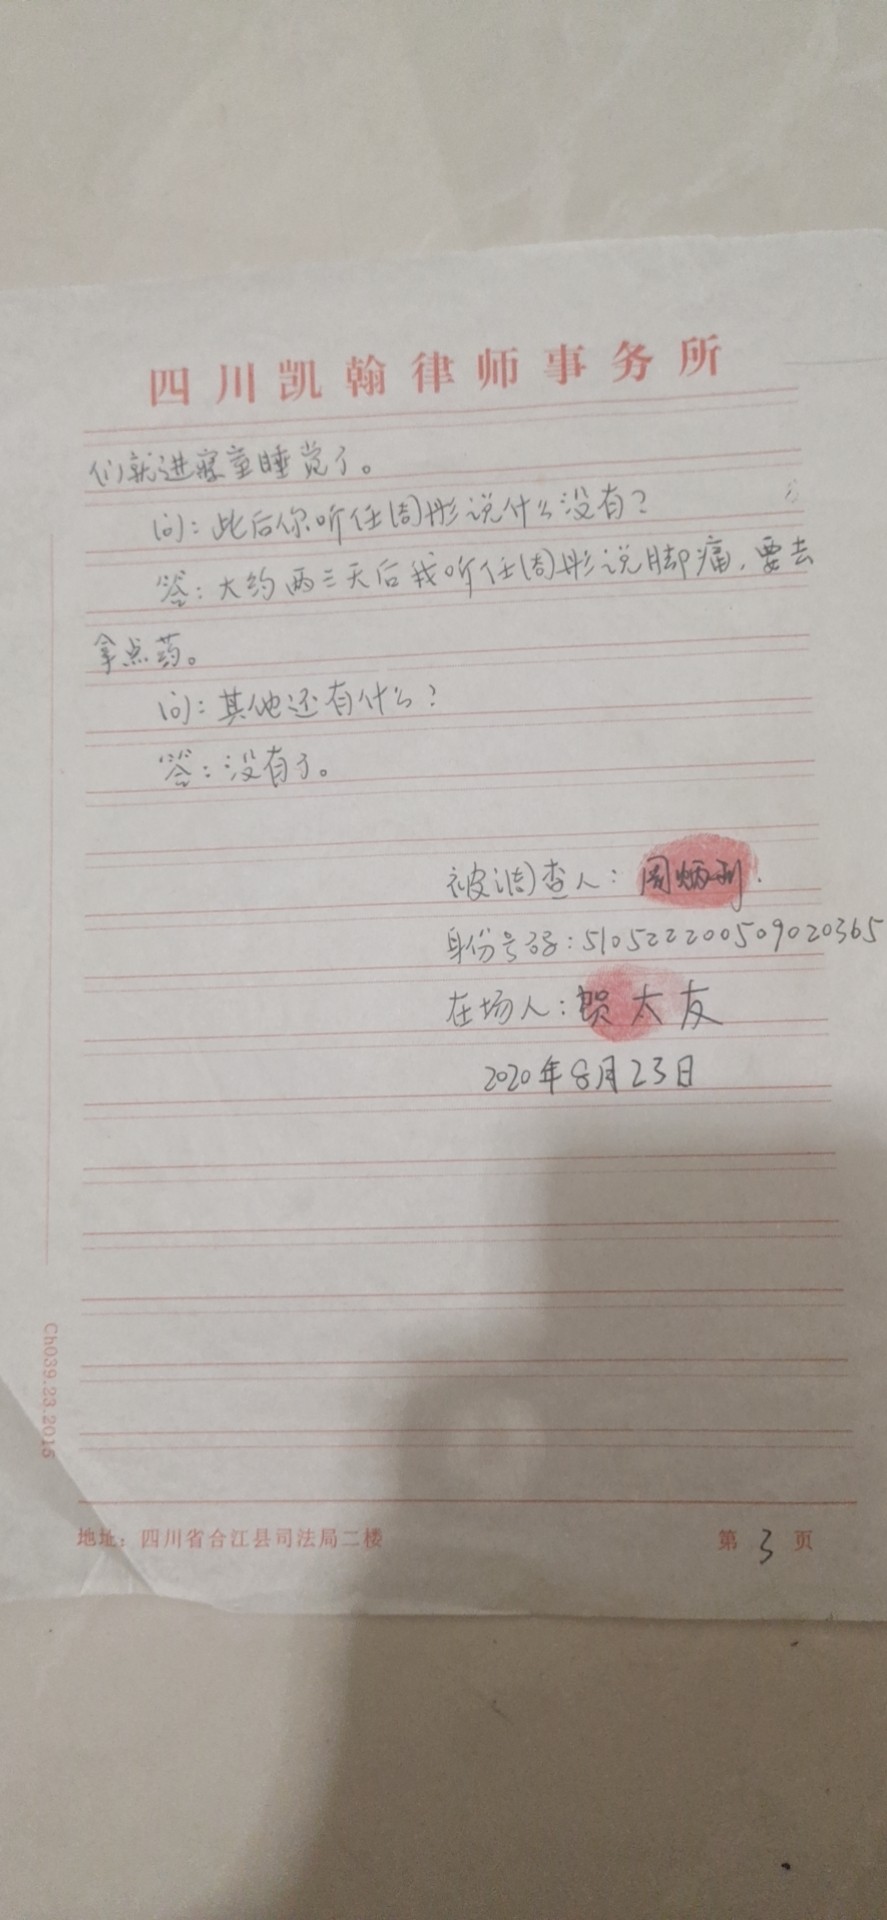 四川凯翰律师事务所
们就进寝室睡觉了。
问：此后你听任周彤说什么没有？
答：大约两三天后我听任周彤说脚痛，要去
拿点药。
问：其他还有什么？
答：没有了。
被调查人：周炳利.
身份号码：510522200509020365
在场人：贺太友
2020年8月23日
Ch039.23.2015
地址：四川省合江县司法局二楼
第3页